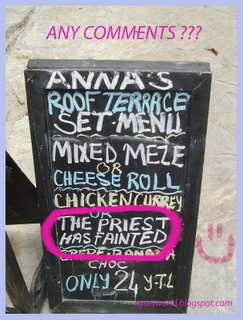 ANY COMMENTS ???
ANNA'S
ROOF TERRACE
SET MENU
MIXED MEZE
OR
CHEESE ROLL
CHICKEN CURREY
OR
THE PRIEST
HAS FAINTED
CREPE-BANANA
CHOC
ONLY 24 Y.T.L